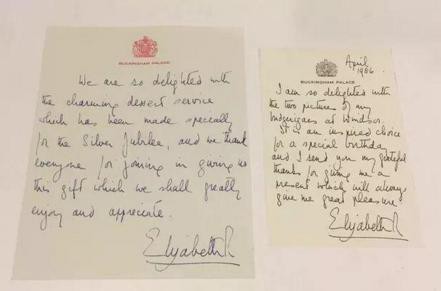 BUCKINGHAM PALACE
We are so delighted with
the charming dessert service
which has been made specially
for the Silver Jubilee, and we thank
everyone for joining in giving us
this gift which we shall greatly
enjoy and appreciate.
Elizabeth R
April
1986.
BUCKINGHAM PALACE
I am so delighted with
the two pictures of my
at Windsor.
It is an inspired choice
for a special birthday
and I send you my grateful
thanks for giving me a
present which will always
give me great pleasure
Elizabeth R